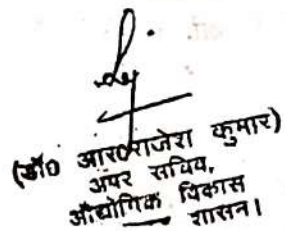 (डॉ० आर०राजेश कुमार)
अपर सचिव,
औद्योगिक विकास
शासन।